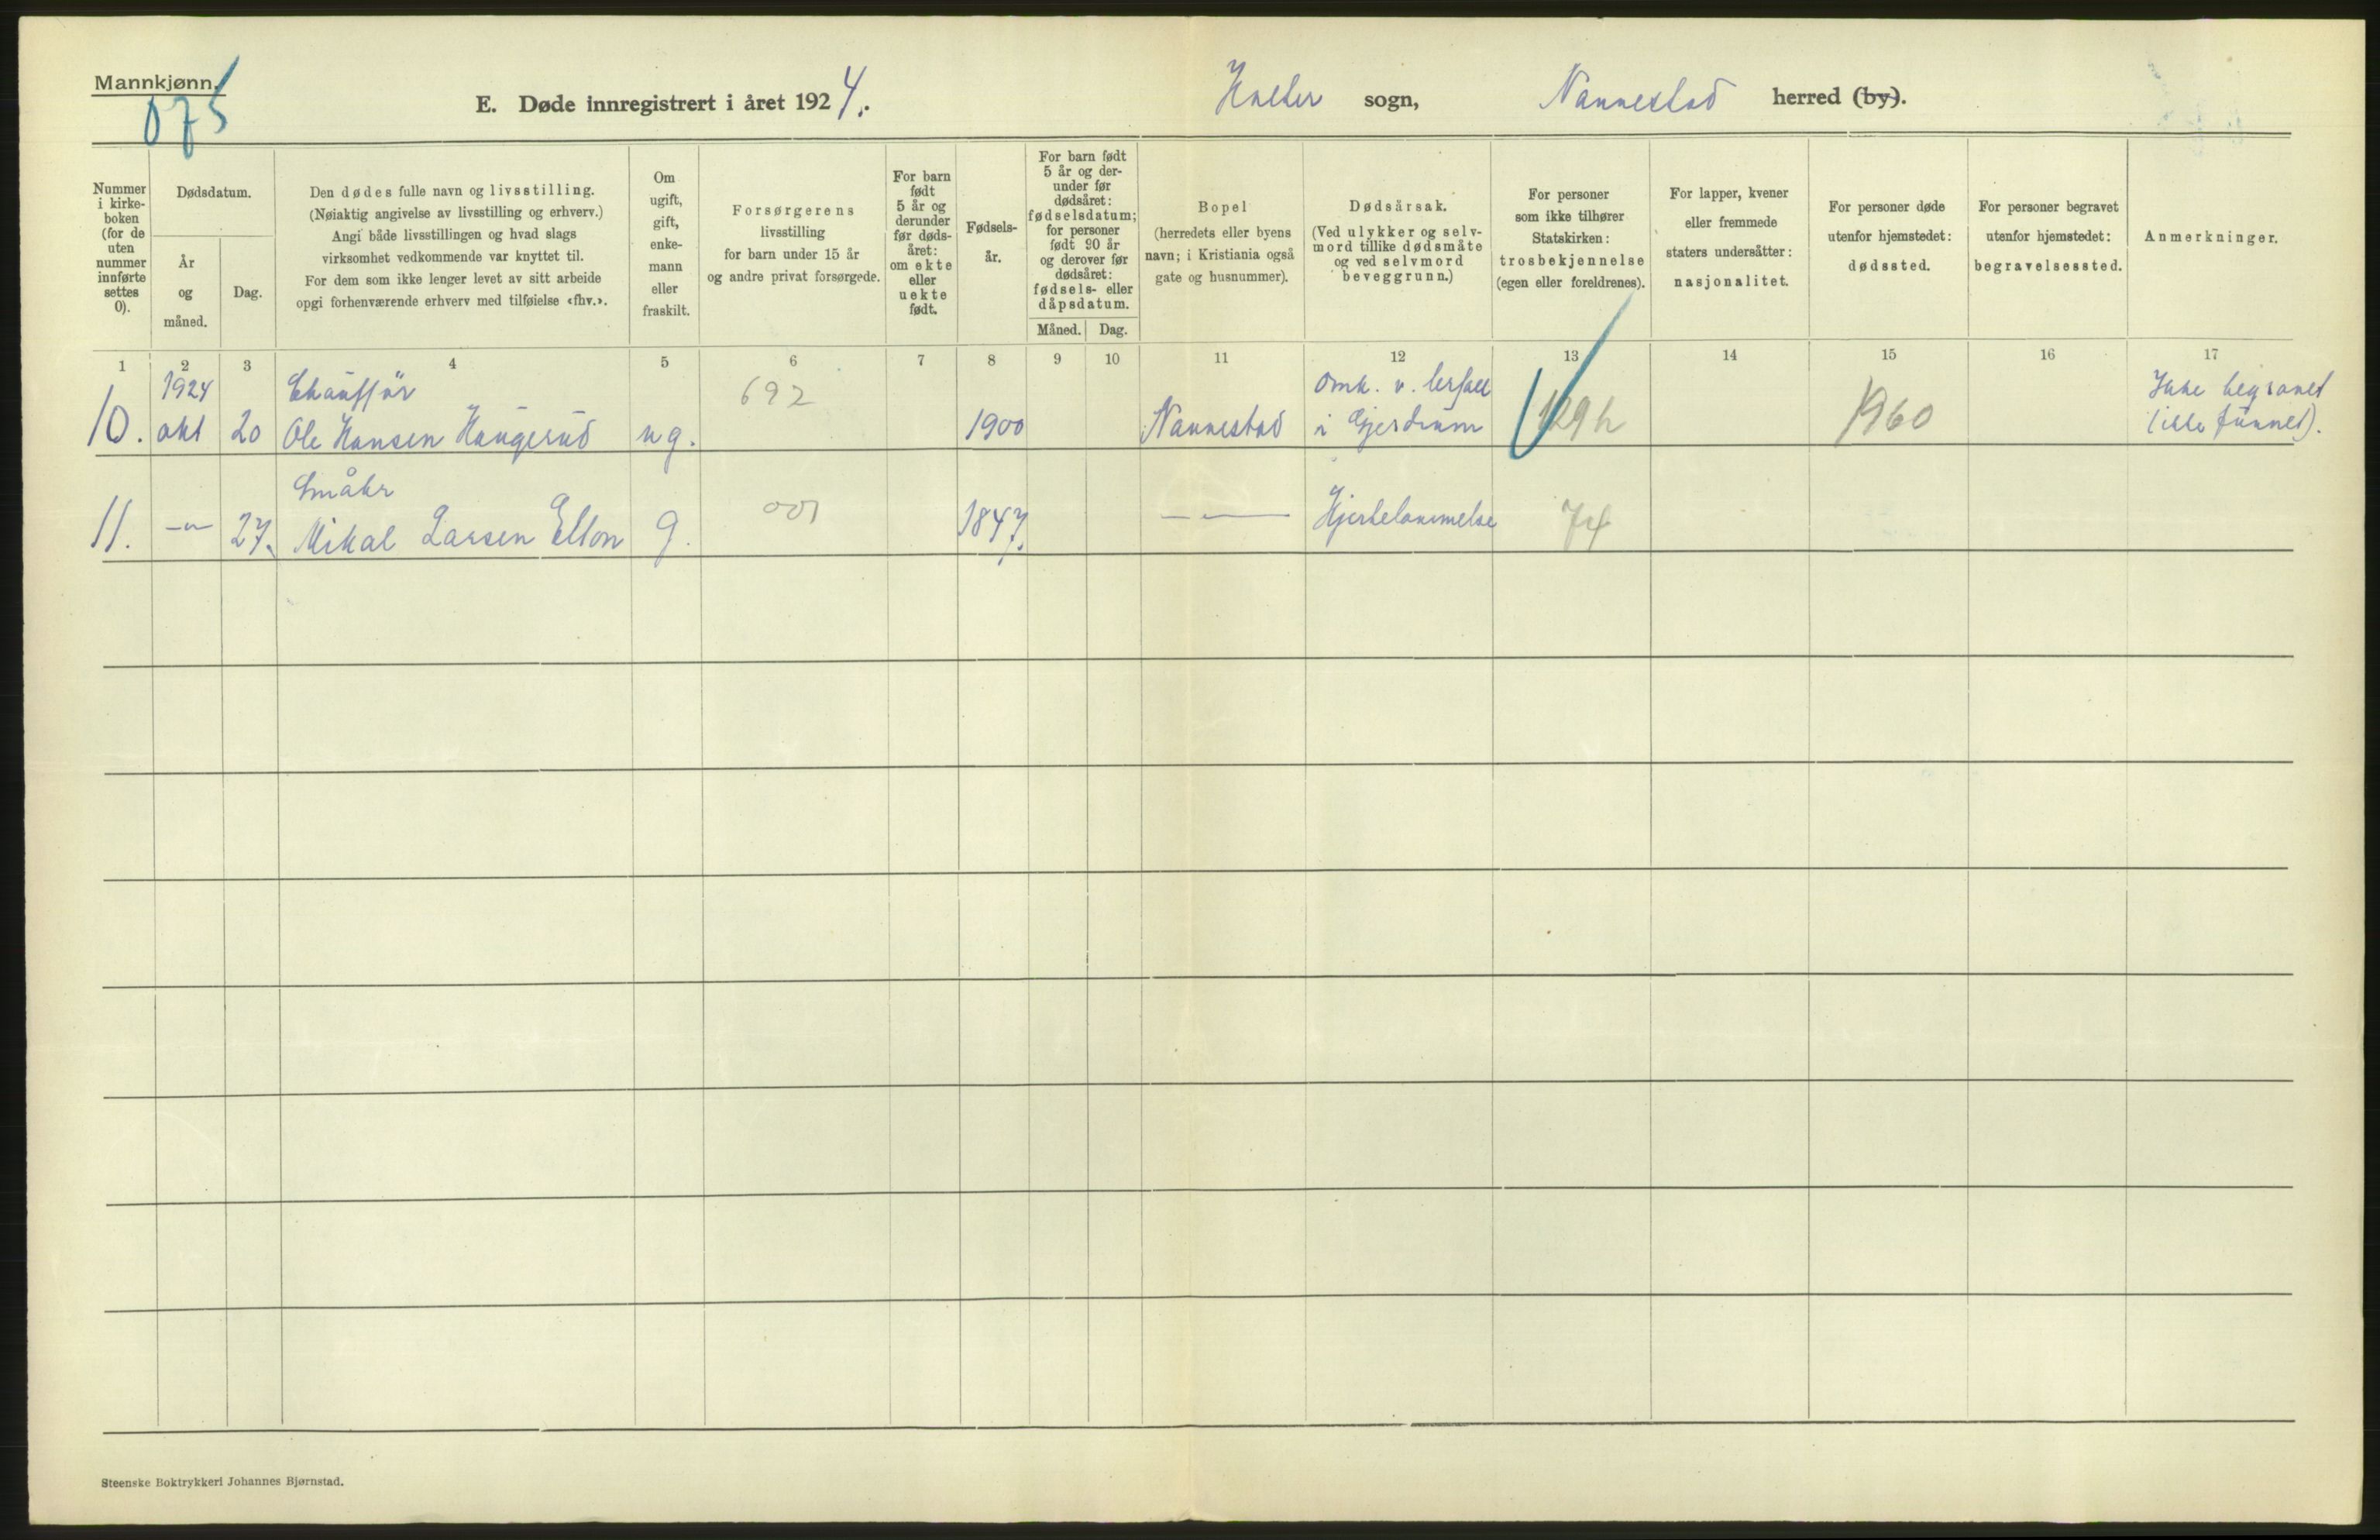 Mannkjønn.
075
E. Døde innregistrert i året 1924.
Holter sogn, Nannestad herred (by).
Nummer i kirke- boken (for de uten nummer innførte settes 0).
Dødsdatum.
År og måned.
Dag.
Den dødes fulle navn og livsstilling.
(Nøiaktig angivelse av livsstilling og erhverv.)
Angi både livsstillingen og hvad slags
virksomhet vedkommende var knyttet til.
For dem som ikke lenger levet av sitt arbeide
opgi forhenværende erhverv med tilføielse «fhv.».
Om ugift, gift, enke- mann eller fraskilt.
Forsørgerens
livsstilling
for barn under 15 år
og andre privat forsørgede.
For barn født 5 år og derunder før døds- året: om ekte eller uekte født.
Fødsels- år.
For barn født 5 år og der- under før dødsåret: fødselsdatum; for personer født 90 år og derover før dødsåret: fødsels- eller dåpsdatum.
Måned. Dag.
Bopel
(herredets eller byens
navn; i Kristiania også
gate og husnummer).
Dødsårsak.
(Ved ulykker og selv-
mord tillike dødsmåte
og ved selvmord
beveggrunn.)
For personer
som ikke tilhører
Statskirken:
trosbekjennelse
(egen eller foreldrenes).
For lapper, kvener
eller fremmede
staters undersåtter:
nasjonalitet.
For personer døde
utenfor hjemstedet:
dødssted.
For personer begravet
utenfor hjemstedet:
begravelsessted.
Anmerkninger.
1 2 3 4 5 6 7 8 9 10 11 12 13 14 15 16 17
1924 Chauffür 692 Omk. v. lerfall Ikke begravet
10. okt 20 Ole Hansen Haugerud ug. 1900 Nannestad i Gjerdrum 129h 1960 (ikke funnet).
Småbr 001
11. -"- 27. Mikal Larsen Elton g. 1847. -"- Hjertelammelse 74
Steenske Boktrykkeri Johannes Bjørnstad.